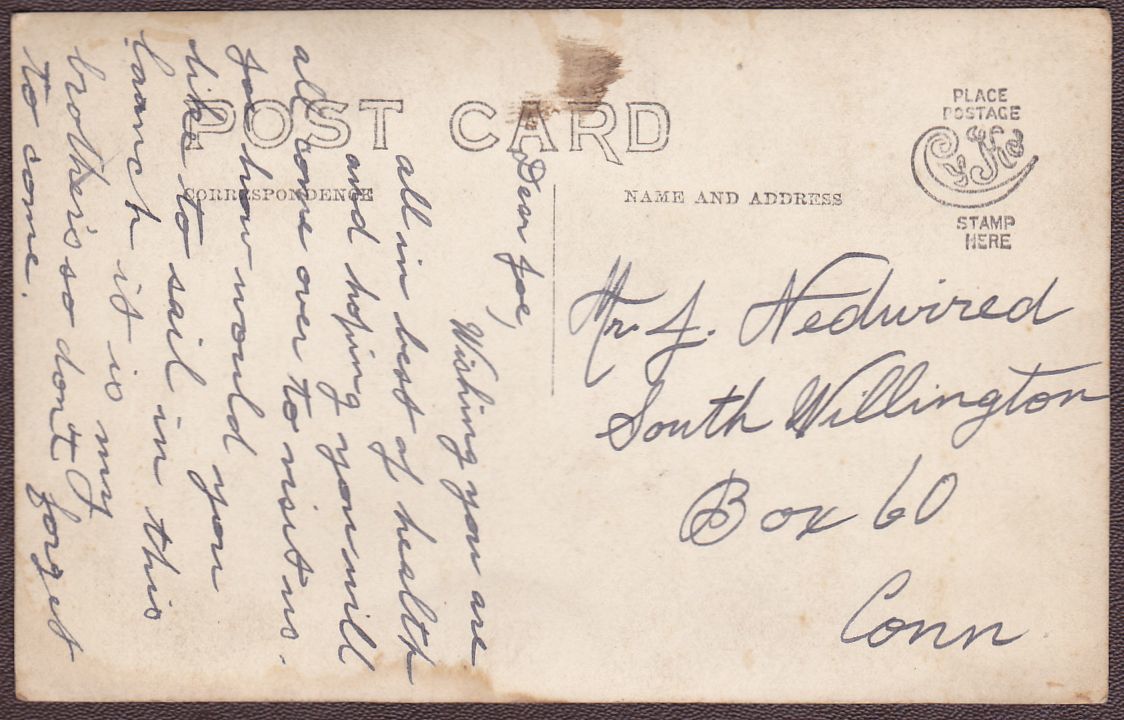 POST CARD
CORRESPONDENCE
Dear Joe,
Wishing you are
all in best of health
and hoping you will
all come over to visit us.
Joe how would you
like to sail in this
launch it is my
brother's so don't forget
to come.
NAME AND ADDRESS
PLACE
POSTAGE
CYKO
STAMP
HERE
Mr. J. Nedwired
South Willington
Box 60
Conn